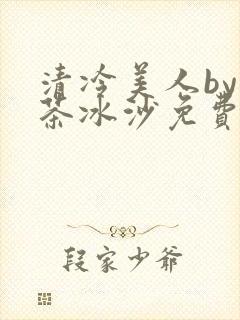 清冷美人by
茶冰沙免費
段家少爺